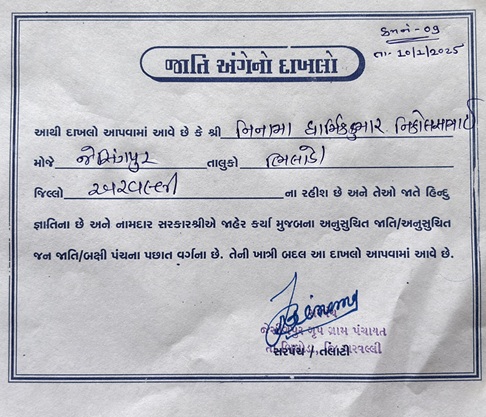 ક્રમ નં - 09
તા.- 10/2/2025
જાતિ અંગેનો દાખલો
આથી દાખલો આપવામાં આવે છે કે શ્રી નિનામા ધાર્મિકકુમાર નિકોલસભાઈ
મોજે જેસિંગપુર તાલુકો ભિલોડા
જિલ્લો અરવલ્લી ના રહીશ છે અને તેઓ જાતે હિન્દુ
જ્ઞાતિના છે અને નામદાર સરકારશ્રીએ જાહેર કર્યા મુજબના અનુસુચિત જાતિ/અનુસુચિત
જન જાતિ/બક્ષી પંચના પછાત વર્ગના છે. તેની ખાત્રી બદલ આ દાખલો આપવામાં આવે છે.
ગૃપ ગ્રામ પંચાયત
સરપંચ / તલાટી